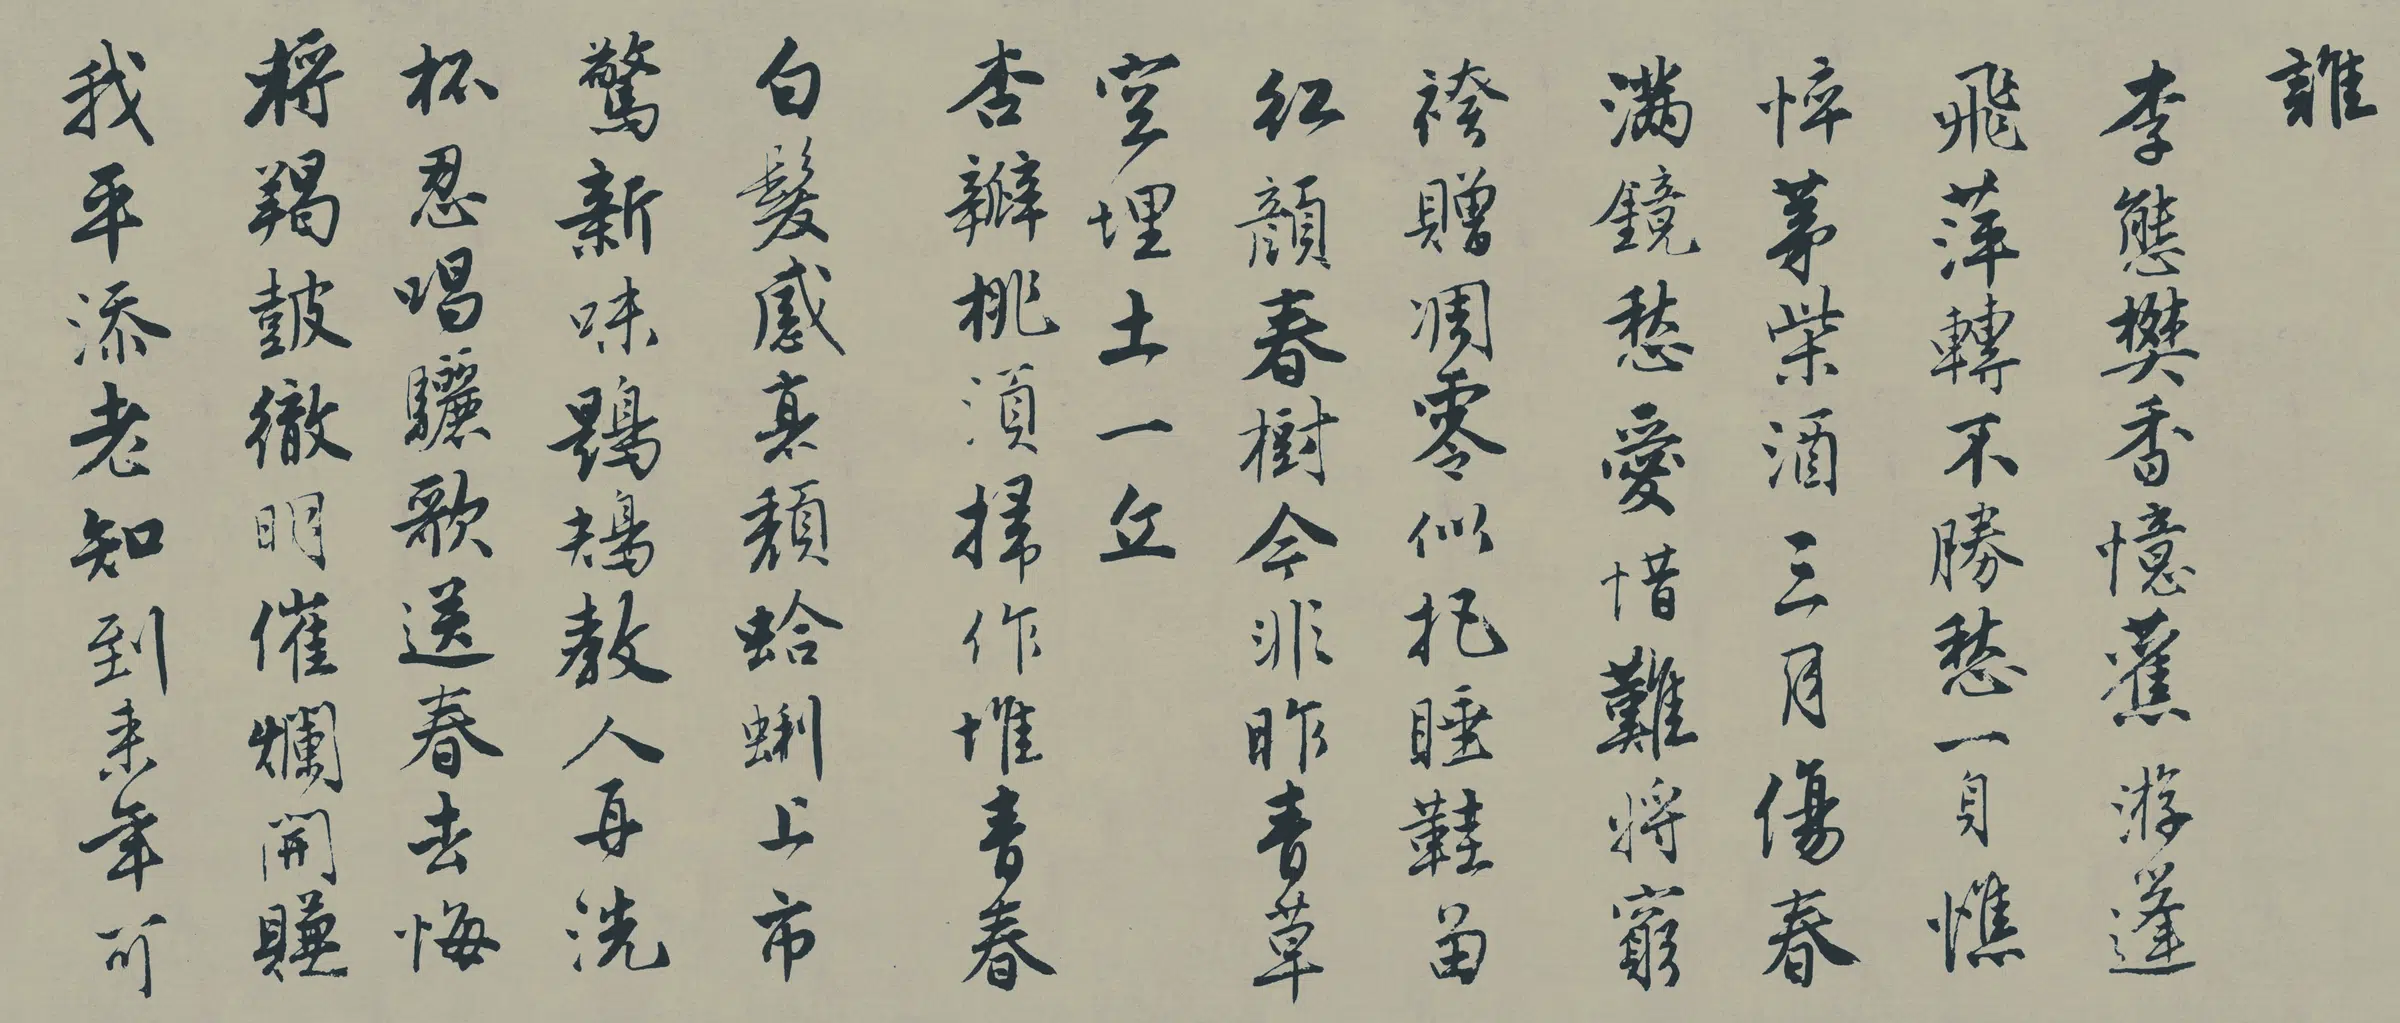 誰
李態樊香憶舊游蓬
飛萍轉不勝愁一身憔
悴茅柴酒三月傷春
滿鏡愁愛惜難將窮
袴贈凋零似把睡鞋留
紅顏春樹今非昨青草
空埋土一丘
杏瓣桃須掃作堆青春
白髮感衰頹蛤蜊上市
驚新味鶗鴂教人再洗
杯忍唱驪歌送春去悔
將羯鼓徹明催爛開賺
我平添老知到來年可